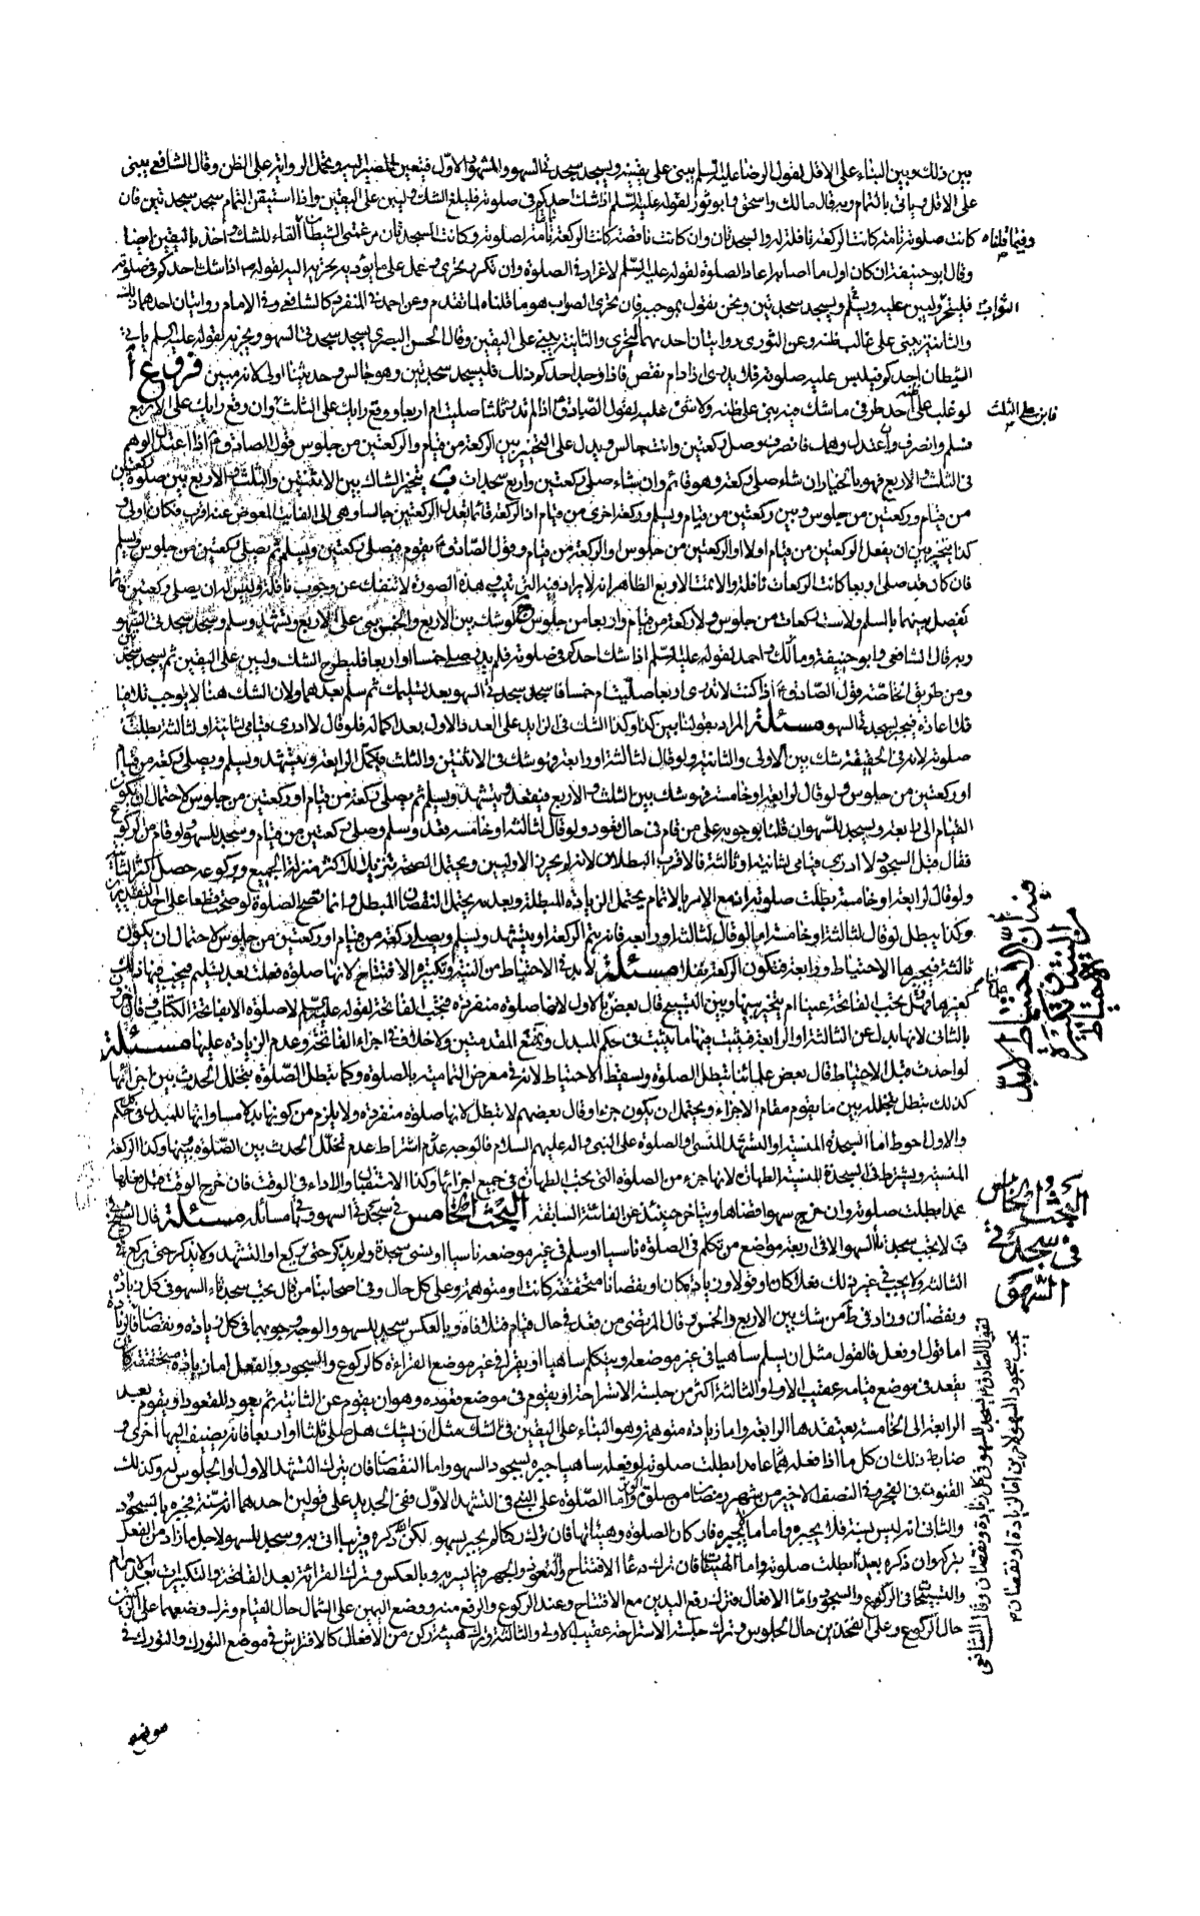 بين ذلك وبين البناء على الاقل لقول الرضا عليه السلم يبنى على يقينه ويسجد سجدتى السهو والمشهور الاول فيتعين المصير اليه ويحمل الرواية على الظن وقال الشافعى يبنى
على الاقل وياتى بالتمام وبه قال مالك واسحق وابو ثور لقوله عليه السلم اذا شك احدكم فى صلوته فليلغ الشك وليبن على اليقين واذا استيقن التمام سجد سجدتين فان
كانت صلوته تامة كانت الركعة نافلة له والسجدتان وان كانت ناقصة كانت الركعة تامة لصلوته وكانت السجدتان مرغمتى الشيطان القاء للشك واخذ باليقين ايضا
وفيما قلناه
وقال ابو حنيفة ان كان اول ما اصابه اعاد الصلوة لقوله عليه السلم لا غرار فى الصلوة وان تكرر تحرى وعمل على ما يؤديه تحريه اليه لقوله ص اذا شك احدكم فى صلوته
فليتحر وليبن عليه ويسلم ويسجد سجدتين ونحن نقول بموجبه فان تحرى الصواب هو ما قلناه لما تقدم وعن احمد فى المنفرد كالشافعى وفى الامام روايتان احدهما ذلك
الثواب
والثانية يبنى على غالب ظنه وعن الثورى روايتان احدهما التحرى والثانية يبنى على اليقين وقال الحسن البصرى يسجد سجدتى السهو ويجزيه لقوله عليه السلم ياتى
الشيطان احدكم فيلبس عليه صلوته فلا يدرى ازاد ام نقص فاذا وجد احدكم ذلك فليسجد سجدتين وهو جالس وحديثنا اولى لانه مبين فروع أ
لو غلب على ظنه احد طرفى ما شك فيه بنى على ظنه ولا شىء عليه لقول الصادق ع اذا لم تدر ثلثا صليت ام اربعا ووقع رايك على الثلث وان وقع رايك على الاربع
فابن على الثلث
فسلم وانصرف وان اعتدل وهمك فانصرف وصل ركعتين وانت جالس ويدل على التخيير بين الركعة من قيام والركعتين من جلوس قول الصادق ع اذا اعتدل الوهم
فى الثلث والاربع فهو بالخيار ان شاء صلى ركعة وهو قائم وان شاء صلى ركعتين واربع سجدات ب يتخير الشاك بين الاثنتين والثلث والاربع بين صلوة ركعتين
من قيام وركعتين من جلوس وبين ركعتين من قيام ويسلم وركعة اخرى من قيام اذ الركعة قائما تعدل الركعتين جالسا وهى الى الفايت المعوض عنه اقرب فكان اولى و
كذا يتخير بين ان يفعل الركعتين من قيام اولا او الركعتين من جلوس او الركعة من قيام وقول الصادق ع يقوم فيصلى ركعتين ويسلم ثم يصلى ركعتين من جلوس ويسلم
فان كان قد صلى اربعا كانت الركعات نافلة والا تمت الاربع الظاهر انه لم يرد فيه الترتيب وهذه الصورة لا تنفك عن وجوب نافلة وليس له ان يصلى ركعتين قائما
يفصل بينهما بالسلم ولا ست ركعات من جلوس ولا ركعة من قيام واربعا من جلوس ج لو شك بين الاربع والخمس بنى على الاربع وتشهد وسلم وسجد سجدتى السهو
وبه قال الشافعى وابو حنيفة ومالك واحمد لقوله عليه السلم اذا شك احدكم فى صلوته فلم يدر صلى خمسا او اربعا فليطرح الشك وليبن على اليقين ثم يسجد سجدتين
ومن طريق الخاصة قول الصادق ع اذا كنت لا تدرى اربعا صليت ام خمسا فاسجد سجدتى السهو بعد تسليمك ثم سلم بعدهما ولان الشك هنا لا يوجب تلافيا
فلا اعادة فيجبر بسجدتى السهو مسئلة المراد بقولنا بين كذا وكذا الشك فى الزايد على العدد الاول بعد اكماله فلو قال لا ادرى قيامى لثانية او لثالثة بطلت
صلوته لانه فى الحقيقة شك بين الاولى والثانية ولو قال لثالثة او رابعة فهو شك فى الاثنتين والثلث فيكمل الرابعة ويتشهد ويسلم ويصلى ركعة من قيام
او ركعتين من جلوس ولو قال لرابعة او خامسة فهو شك بين الثلث والاربع فيقعد ويتشهد ويسلم ثم يصلى ركعة من قيام او ركعتين من جلوس لاحتمال ان يكون
القيام الى رابعة ويسجد للسهو ان قلنا بوجوبه على من قام فى حال قعود ولو قال لثالثة او خامسة قعد وسلم وصلى ركعتين من قيام وسجد للسهو ولو قام من الركوع
فقال قبل السجود لا ادرى قيامى لثانية او ثالثة فالاقرب البطلان لانه لم يحرز الاوليين ويحتمل الصحة تنزيلا للاكثر منزلة الجميع وبركوعه حصل اكثر الثانية
ولو قال لرابعة او خامسة بطلت صلوته لانه مع الامر بالاتمام يحتمل الزيادة المبطلة وبعدمه يحتمل النقصان المبطل وانما تصح الصلوة لو صحت قطعا على احد التقديرين
وكذا يبطل لو قال لثالثة او خامسة اما لو قال لثالثة او رابعة فانه يتم الركعة او يتشهد ويسلم ويصلى ركعة من قيام او ركعتين من جلوس لاحتمال ان يكون
ثالثة فيجبرها الاحتياط ورابعة فتكون الركعة نفلا مسئلة لا بد فى الاحتياط من النية وتكبيرة الافتتاح لانها صلوة فعلت بعد تسليم فيجب فيها ذلك
كغيرها وهل تجب الفاتحة عينا ام يتخير بينها وبين التسبيح قال بعض علمائنا بالاول لانها صلوة منفردة فتجب الفاتحة لقوله عليه السلم لا صلوة الا بفاتحة الكتاب وقال اخرون
بالثانى لانها بدل عن الثالثة او الرابعة فيثبت فيها ما يثبت فى حكم المبدل ويمنع المقدمتين ولا خلاف فى اجزاء الفاتحة وعدم الزيادة عليها مسئلة
لو احدث قبل الاحتياط قال بعض علمائنا تبطل الصلوة ويسقط الاحتياط لانه فى معرض التمامية بالصلوة وكما تبطل الصلوة بتخلل الحدث بين اجزائها
كذلك تبطل بتخلله بين ما يقوم مقام الاجزاء ويحتمل ان يكون جزءا وقال بعضهم لا تبطل لانها صلوة منفردة ولا يلزم من كونها بدلا مساواتها للمبدل فى كل حكم
والاول احوط اما السجدة المنسية او التشهد المنسى او الصلوة على النبى واله عليهم السلام فالوجه عدم اشتراط عدم تخلل الحدث بين الصلوة وبينها وكذا الركعة
المنسية ويشترط فى السجدة المنسية الطهارة لانها جزء من الصلوة التى يجب الطهارة فى جميع اجزائها وكذا الاستقبال والاداء فى الوقت فان خرج الوقت قبل فعلها
عمدا بطلت صلوته وان خرج سهوا قضاها ويتاخر حينئذ عن الفائتة السابقة البحث الخامس فى سجدتى السهو وفيها مسائل مسئلة قال الشيخ فى
ف لا تجب سجدتا السهو الا فى اربعة مواضع من تكلم فى الصلوة ناسيا او سلم فى غير موضعه ناسيا او نسى سجدة ولم يذكر حتى يركع او التشهد ولا يذكر حتى يركع فى
الثالثة ولا يجب فى غير ذلك فعلا كان او قولا وزيادة كان او نقصانا متحققة كانت او متوهمة وعلى كل حال وفى اصحابنا من قال تجب سجدتا السهو فى كل زيادة
ونقصان وزاد فى ط من شك بين الاربع والخمس وقال المرتضى من قعد فى حال قيام فتلافاه وبالعكس سجد للسهو والوجه وجوبهما فى كل زيادة ونقصان فالزيادة
اما قول او فعل فالقول مثل ان يسلم ساهيا فى غير موضعه او يتكلم ساهيا او يقرا فى غير موضع القراءة كالركوع والسجود والفعل اما زيادة متحققة كان
يقعد فى موضع قيامه عقيب الاولى والثالثة اكثر من جلسة الاستراحة او يقوم فى موضع قعوده وهو ان يقوم عن الثانية ثم يعود للقعود او يقوم بعد
الرابعة الى الخامسة يعتقدها الرابعة واما زيادة متوهمة وهو البناء على اليقين فى الشك مثل ان يشك هل صلى ثلثا او اربعا فانه يضيف اليها اخرى و
ضابط ذلك ان كل ما اذا فعله عامدا بطلت صلوته لو فعله ساهيا جبره بسجود السهو واما النقصان فان يترك التشهد الاول او الجلوس له وكذلك
القنوت فى الفجر وفى النصف الاخير من شهر رمضان من صلوة الوتر واما الصلوة على النبى فى التشهد الاول ففى الجديد على قولين احدهما انه سنة فيجبره بالسجود
والثانى انه ليس بسنة فلا يجبره واما ما لا يجبره فاركان الصلوة وهيئاتها فان ترك ركنا لم يجبر بسهو لكن ان ذكره قريبا اتى به وسجد للسهو لاجل ما زاد من الفعل
بتركه وان ذكره بعيدا بطلت صلوته واما الهيئات فان ترك دعاء الافتتاح والتعوذ والجهر فيما يسر به وبالعكس وترك القراءة بعد الفاتحة والتكبيرات بعد الاحرام
والتسبيحات فى الركوع والسجود واما الافعال فترك رفع اليدين مع الافتتاح وعند الركوع والرفع منه ووضع اليمين على الشمال حال القيام وترك وضعهما على الركبتين
حال الركوع وعلى الفخذين حال الجلوس وترك جلسة الاستراحة عقيب الاولى والثالثة وترك هيئة ركن من الافعال كالافتراش فى موضع التورك والتورك فى
موضع
فى أن الاحتياط لا بد
من النية وتكبيرة
الاحتياط
البحث الخامس
فى سجدتى
السهو
لقول الصادق ع تسجد للسهو فى كل زيادة ونقصان وقال الشافعى
يجب سجود السهو لامرين اما لزيادة او نقصان